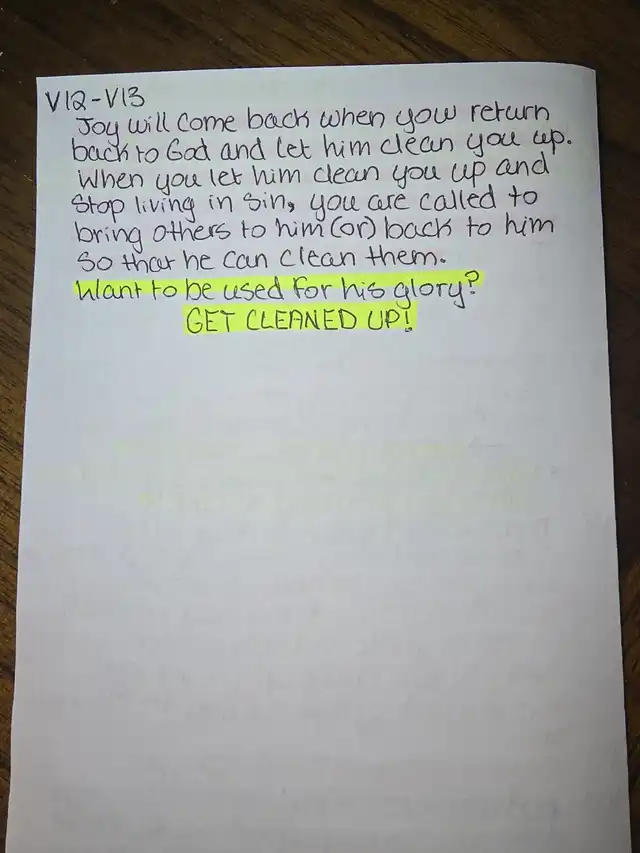 V12-V13
Joy will come back when you return
back to God and let him clean you up.
When you let him clean you up and
Stop living in Sin, you are called to
bring others to him (or) back to him
So that he can clean them.
Want to be used for his glory?
GET CLEANED UP!